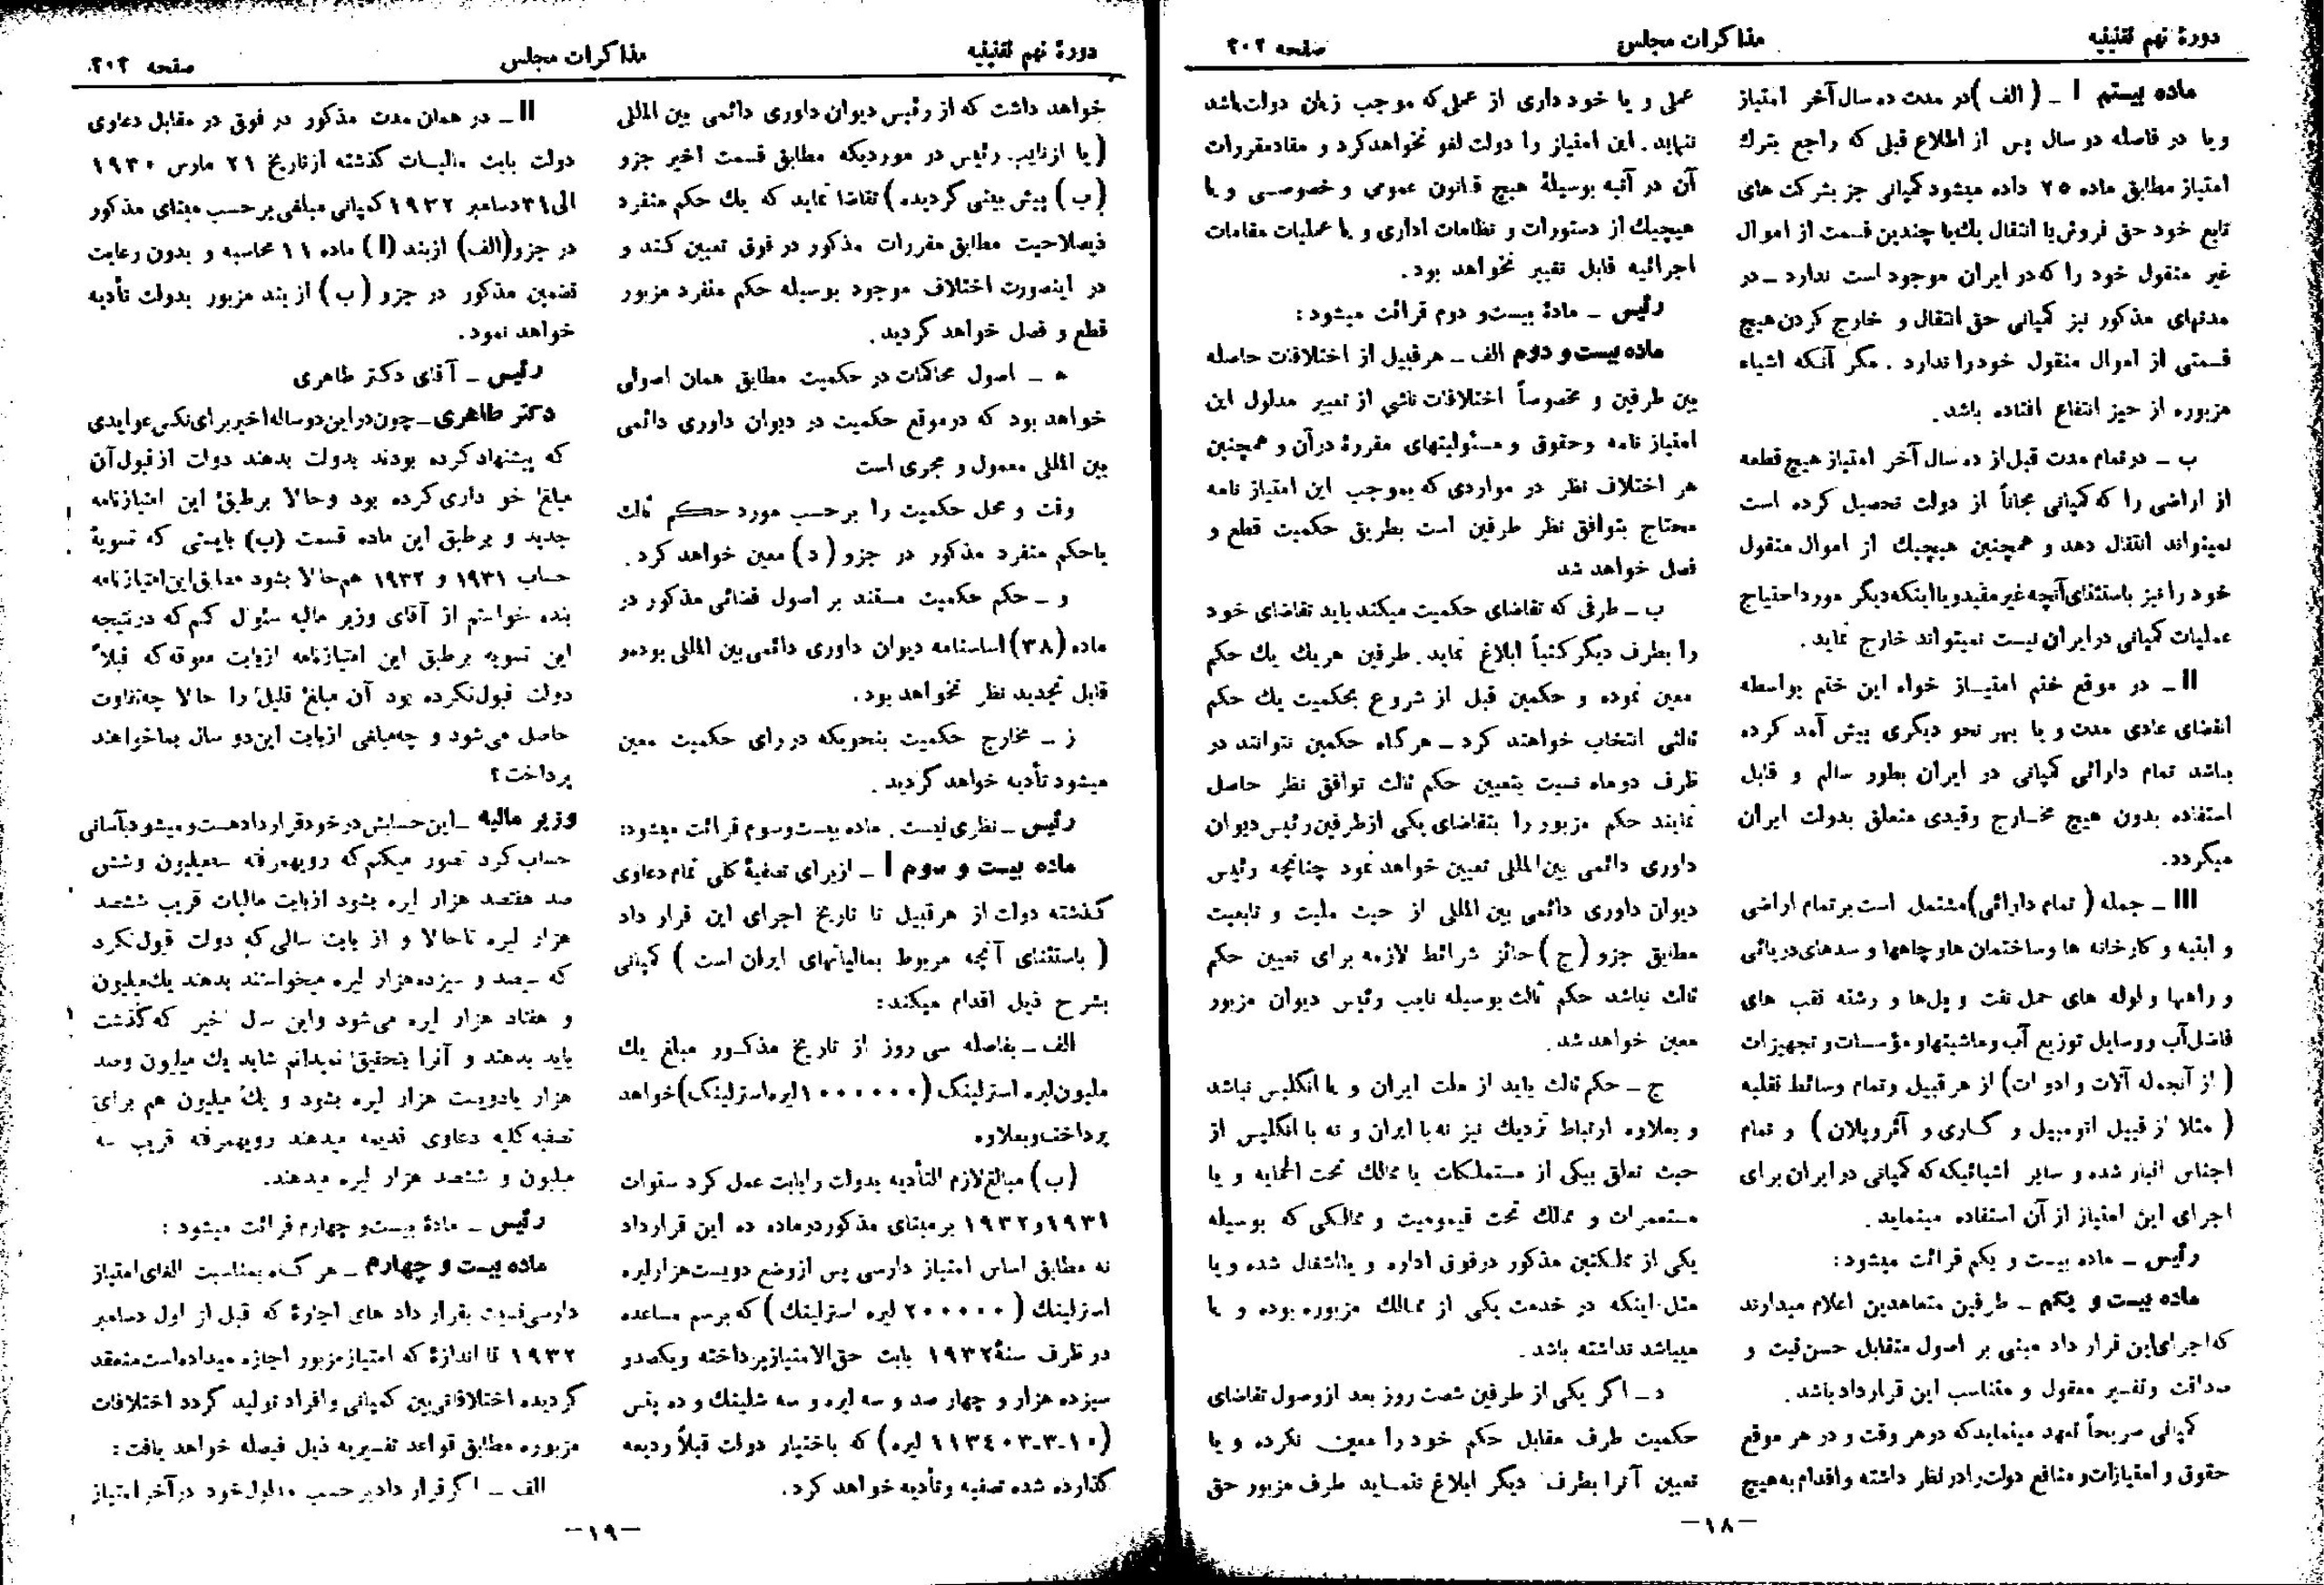 دورهٔ نهم تقنینیه
مذاکرات مجلس
صفحه ۲۰۲
ماده بیستم I ــ ( الف )در مدت ده سال آخر امتیاز
ویا در فاصله دو سال پس از اطلاع قبلی که راجع بترك
امتیاز مطابق ماده ۲۵ داده میشود کمپانی جز بشرکت های
تابع خود حق فروش یا انتقال یك یا چندین قسمت از اموال
غیر منقول خود را که در ایران موجود است ندارد ــ در
مدتهای مذکور نیز کمپانی حق انتقال و خارج کردن هیچ
قسمتی از اموال منقول خود را ندارد . مگر آنکه اشیاء
مزبوره از حیز انتفاع افتاده باشد.
ب ــ در تمام مدت قبل از ده سال آخر امتیاز هیچ قطعه
از اراضی را که کمپانی مجاناً از دولت تحصیل کرده است
نمیتواند انتقال دهد و همچنین هیچیك از اموال منقول
خود را نیز باستثنای آنچه غیر مفید و یا اینکه دیگر مورد احتیاج
عملیات کمپانی در ایران نیست نمیتواند خارج نماید .
II ــ در موقع ختم امتیــاز خواه این ختم بواسطه
انقضای عادی مدت و یا بهر نحو دیگری پیش آمد کرده
باشد تمام دارائی کمپانی در ایران بطور سالم و قابل
استفاده بدون هیچ مخــارج وقیدی متعلق بدولت ایران
میگردد.
III ــ جمله ( تمام دارائی )مشتمل است بر تمام اراضی
و ابنیه و کارخانه ها و ساختمان ها و چاهها و سدهای دریائی
و راهها و لوله های حمل نفت و پل‌ها و رشته نقب های
فاضل آب و وسایل توزیع آب و ماشینها و مؤسسات و تجهیزات
( از آنجمله آلات و ادوات) از هر قبیل و تمام وسائط نقلیه
( مثلا از قبیل اتومبیل و گــاری و آئروپلان ) و تمام
اجناس انبار شده و سایر اشیائیکه که کمپانی در ایران برای
اجرای این امتیاز از آن استفاده مینماید .
رئیس ــ ماده بیست و یکم قرائت میشود:
ماده بیست و یکم ــ طرفین متعاهدین اعلام میدارند
که اجرای این قرار داد مبنی بر اصول متقابل حسن نیت و
صداقت وتفسیر معقول و متناسب این قرارداد باشد.
کمپانی صریحاً تعهد مینماید که در هر وقت و در هر موقع
حقوق و امتیازات و منافع دولت را در نظر داشته و اقدام به هیچ
عملی و یا خود داری از عملی که موجب زیان دولت باشد
ننماید . این امتیاز را دولت لغو نخواهد کرد و مفاد مقررات
آن در آتیه بوسیلهٔ هیچ قانون عمومی و خصوصی و یا
هیچیك از دستورات و نظامات اداری و یا عملیات مقامات
اجرائیه قابل تغییر نخواهد بود.
رئیس ــ مادهٔ بیست و دوم قرائت میشود :
ماده بیست و دوم الف ــ هر قبیل از اختلافات حاصله
بین طرفین و مخصوصاً اختلافات ناشی از تعبیر مدلول این
امتیاز نامه وحقوق و مسئولیتهای مقررهٔ در آن و همچنین
هر اختلاف نظر در مواردی که بموجب این امتیاز نامه
محتاج بتوافق نظر طرفین است بطریق حکمیت قطع و
فصل خواهد شد
ب ــ طرفی که تقاضای حکمیت میکند باید تقاضای خود
را بطرف دیگر کتباً ابلاغ نماید. طرفین هریك یك حکم
معین نموده و حکمین قبل از شروع بحکمیت یك حکم
ثالثی انتخاب خواهند کرد ــ هر گاه حکمین نتوانند در
ظرف دو ماه نسبت بتعیین حکم ثالث توافق نظر حاصل
نمایند حکم مزبور را بتقاضای یکی از طرفین رئیس دیوان
داوری دائمی بین‌المللی تعیین خواهد نمود چنانچه رئیس
دیوان داوری دائمی بین المللی از حیث ملیت و تابعیت
مطابق جزو (ج) حائز شرائط لازمه برای تعیین حکم
ثالث نباشد حکم ثالث بوسیله نایب رئیس دیوان مزبور
معین خواهد شد.
ج ــ حکم ثالث باید از ملت ایران و یا انگلیس نباشد
و بعلاوه ارتباط نزدیك نیز نه با ایران و نه با انگلیس از
حیث تعلق بیکی از مستملکات یا ممالك تحت الحمایه و یا
مستعمرات و ممالك تحت قیمومیت و ممالکی که بوسیله
یکی از مملکتین مذکور در فوق اداره و یا اشغال شده و یا
مثل اینکه در خدمت یکی از ممالك مزبوره بوده و یا
میباشد نداشته باشد .
د ــ اگر یکی از طرفین شصت روز بعد از وصول تقاضای
حکمیت طرف مقابل حکم خود را معین نکرده و یا
تعیین آنرا بطرف دیگر ابلاغ ننمــاید طرف مزبور حق
ــ۱۸ــ
دورهٔ نهم تقنینیه
مذاکرات مجلس
صفحه ۲۰۳
خواهد داشت که از رئیس دیوان داوری دائمی بین المللی
( یا از نایب رئیس در موردیکه مطابق قسمت اخیر جزو
(ب) پیش بینی گردیده) تقاضا نماید که یك حکم منفرد
ذیصلاحیت مطابق مقررات مذکور در فوق تعیین کند و
در اینصورت اختلاف موجود بوسیله حکم منفرد مزبور
قطع و فصل خواهد گردید.
ه ــ اصول محاکمات در حکمیت مطابق همان اصولی
خواهد بود که در موقع حکمیت در دیوان داوری دائمی
بین المللی معمول و مجری است
وقت و محل حکمیت را بر حسب مورد حکم ثالث
یا حکم منفرد مذکور در جزو (د) معین خواهد کرد .
و ــ حکم حکمیت مستند بر اصول قضائی مذکور در
ماده (۳۸) اساسنامه دیوان داوری دائمی بین المللی بوده و
قابل تجدید نظر نخواهد بود.
ز ــ مخارج حکمیت بنحویکه در رای حکمیت معین
میشود تأدیه خواهد گردید .
رئیس ــ نظری نیست . ماده بیست وسوم قرائت میشود:
ماده بیست و سوم I ــ از برای تصفیهٔ کلی تمام دعاوی
گذشته دولت از هر قبیل تا تاریخ اجرای این قرار داد
( باستثنای آنچه مربوط بمالیاتهای ایران است ) کمپانی
بشرح ذیل اقدام میکند:
الف ــ بفاصله سی روز از تاریخ مذکــور مبلغ یك
ملیون لیره استرلینك (۱۰۰۰۰۰۰ لیره استرلینك) خواهد
پرداخت و بعلاوه
(ب) مبالغ لازم التأدیه بدولت را بابت عمل کرد سنوات
۱۹۳۱ و ۱۹۳۲ بر مبنای مذکور در ماده ده این قرارداد
نه مطابق اساس امتیاز دارسی پس از وضع دویست هزار لیره
استرلینك ( ۲۰۰۰۰۰ لیره استرلینك ) که برسم مساعده
در ظرف سنهٔ ۱۹۳۲ بابت حق الامتیاز پرداخته و یکصد و
سیزده هزار و چهار صد و سه لیره و سه شلینك و ده پنس
(۱۰ـ۳ـ۱۱۳۴۰۳ لیره) که باختیار دولت قبلاً ودیعه
گذارده شده تصفیه و تأدیه خواهد کرد.
II ــ در همان مدت مذکور در فوق در مقابل دعاوی
دولت بابت مالیــات گذشته از تاریخ ۲۱ مارس ۱۹۳۰
الی ۳۱ دسامبر ۱۹۳۲ کمپانی مبلغی بر حسب مبنای مذکور
در جزو (الف) از بند (I) ماده ۱۱ محاسبه و بدون رعایت
تضمین مذکور در جزو (ب) از بند مزبور بدولت تأدیه
خواهد نمود.
رئیس ــ آقای دکتر طاهری
دکتر طاهری ــ چون در این دو ساله اخیر برای نکس عوایدی
که پیشنهاد کرده بودند بدولت بدهند دولت از قبول آن
مبلغ خو داری کرده بود وحالا بر طبق این امتیازنامه
جدید و بر طبق این ماده قسمت (ب) بایستی که تسویهٔ
حساب ۱۹۳۱ و ۱۹۳۲ هم حالا بشود مطابق این امتیازنامه
بنده خواستم از آقای وزیر مالیه سئوال کنم که در نتیجه
این تسویه بر طبق این امتیازنامه از بابت معوقه که قبلاً
دولت قبول نکرده بود آن مبلغ قلیل را حالا چه تفاوت
حاصل می شود و چه مبلغی از بابت این دو سال بما خواهند
پرداخت؟
وزیر مالیه ــ این حسابش در خود قرارداد هست و میشود بآسانی
حساب کرد تصور میکنم که رویهمرفته سه ملیون وشش
صد هفتصد هزار لیره بشود از بابت مالیات قریب ششصد
هزار لیره تا حالا و از بابت سالی که دولت قبول نکرد
که سیصد و سیزده هزار لیره میخواستند بدهند یك ملیون
و هفتاد هزار لیره می شود و این سال اخیر که گذشت
باید بدهند و آنرا بتحقیق نمیدانم شاید یك میلیون وصد
هزار یا دویست هزار لیره بشود و یك میلیون هم برای
تصفیه کلیه دعاوی قدیمه میدهند رویهمرفته قریب سه
میلیون و ششصد هزار لیره میدهند.
رئیس ــ مادهٔ بیست و چهارم قرائت میشود :
ماده بیست و چهارم ــ هر گــاه بمناسبت الغای امتیاز
دارسی نسبت بقرار داد های اجارهٔ که قبل از اول دسامبر
۱۹۳۲ تا اندازهٔ که امتیاز مزبور اجازه میداده است منعقد
گردیده اختلافاتی بین کمپانی و افراد تولید گردد اختلافات
مزبوره مطابق قواعد تفسیریه ذیل فیصله خواهد یافت :
الف ــ اگر قرار داد بر حسب مدلول خود در آخر امتیاز
ــ۱۹ــ